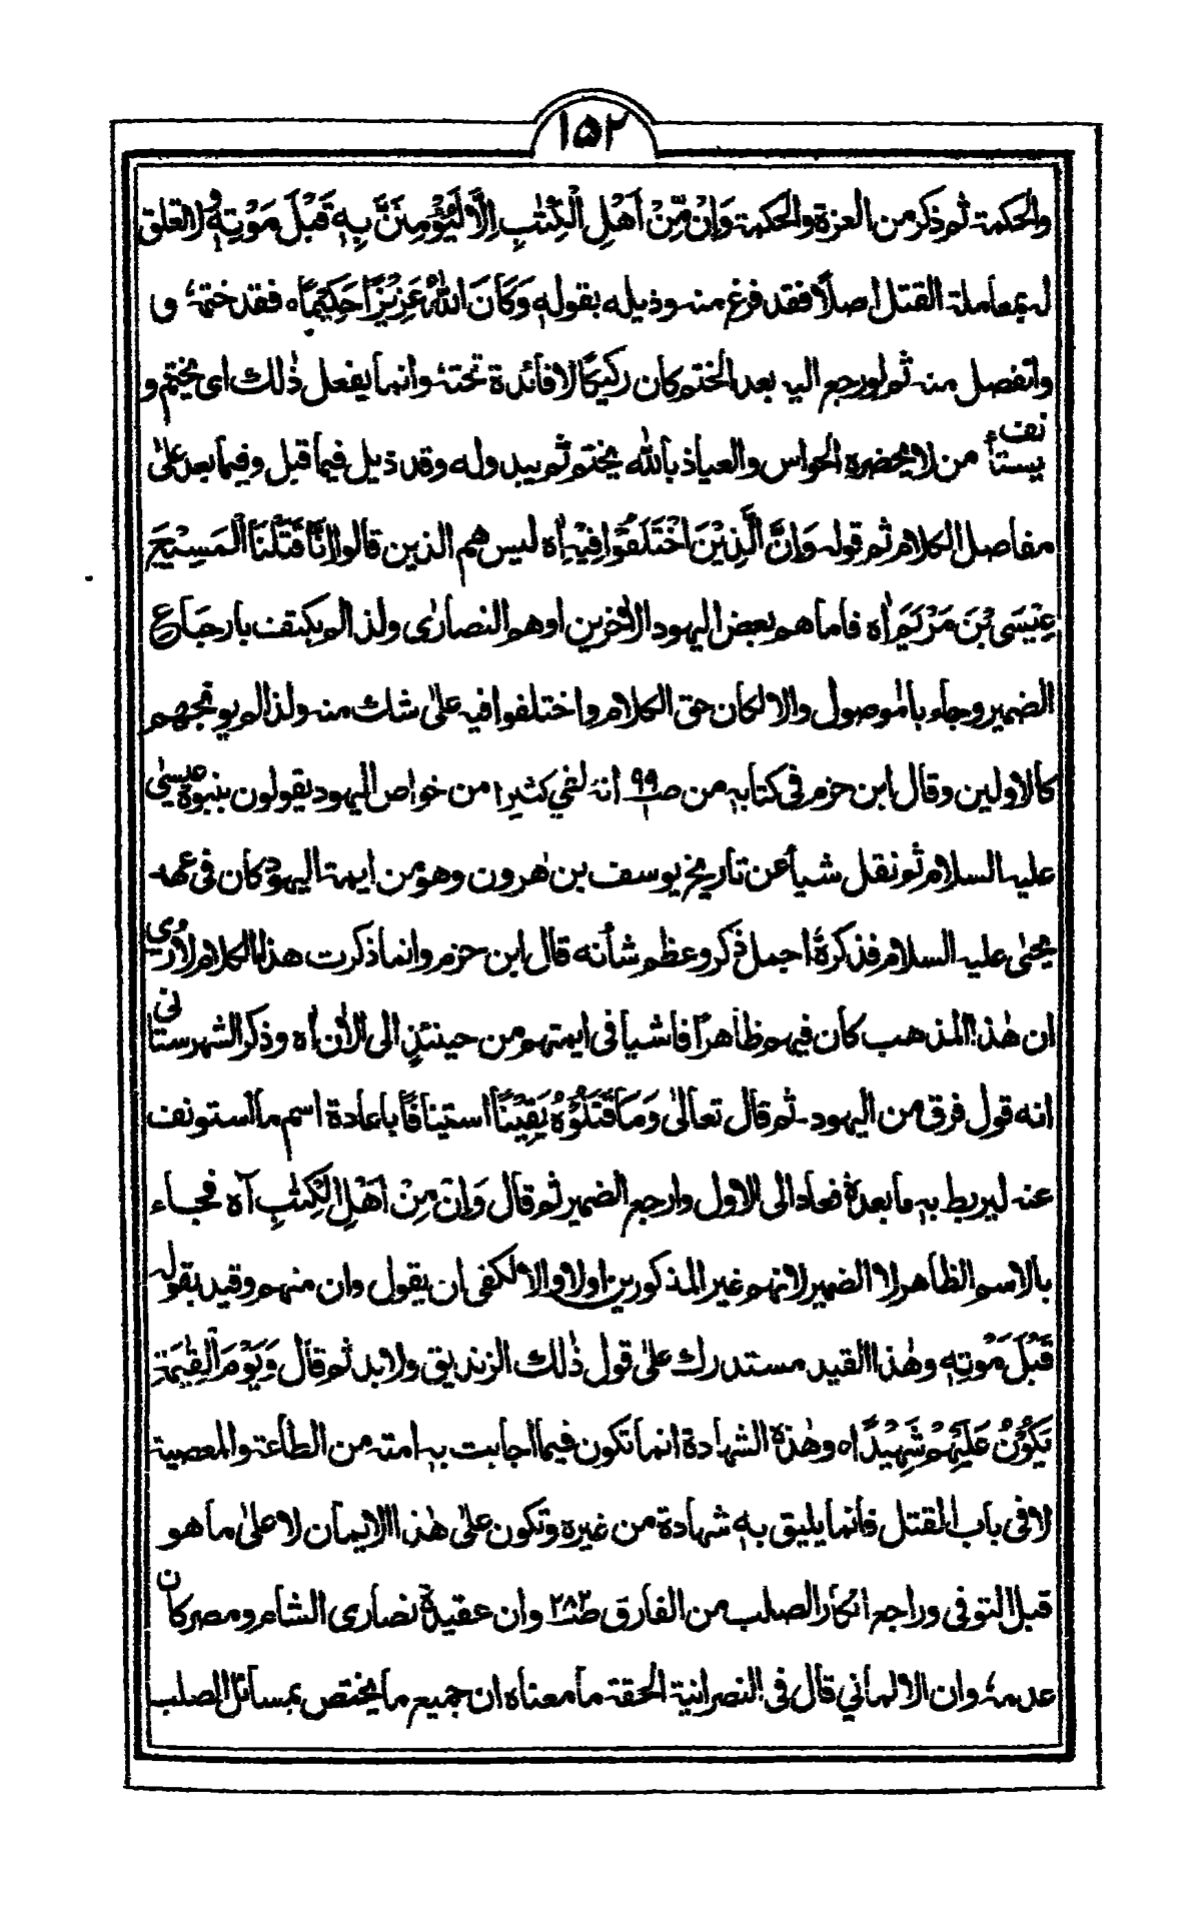 ١٥٢
والحكمة ثم ذكر من العزة والحكمة وَاِنْ مِّنْ اَهْلِ الْكِتٰبِ اِلَّا لَيُؤْمِنَنَّ بِهٖ قَبْلَ مَوْتِهٖ ولا تعلق
له بمعاملة القتل اصلاً فقد فرغ منه وذيله بقوله وَكَانَ اللّٰهُ عَزِيْزًا حَكِيْمًا ه فقد ختمه و
وانفصل منه ثم لو رجع اليه بعد الختم كان ركيكًا لا فائدة تحته وانما يفعل ذٰلك اى يختم و
يستأنف من لا يحضره الحواس والعياذ بالله يختم ثم يبدو له وقد ذيل فيما قبل وفيما بعد علىٰ
مفاصل الكلام ثم قوله وَاِنَّ الَّذِيْنَ اخْتَلَفُوْا فِيْهِ اه ليس هم الذين قالوا اِنَّا قَتَلْنَا الْمَسِيْحَ
عِيْسَى بْنَ مَرْيَمَ اه فاما هم بعض اليهود الاٰخرين او هم النصارٰى ولذا لم يكتف بارجاع
الضمير وجاء بالموصول والا لكان حق الكلام واختلفوا فيه علىٰ شك منه ولذا لم يوبخهم
كالاولين وقال ابن حزم فى كتابه من صـ٩٩ انه لقي كثيرا من خواص اليهود يقولون بنبوة عيسىٰ
عليه السلام ثم نقل شيأ عن تاريخ يوسف بن هٰرون وهو من ايمة اليهود كان فى عهد
يحيىٰ عليه السلام فذكره اجمل ذكر وعظم شأنه قال ابن حزم وانما ذكرت هذا الكلام لاُرِي
ان هٰذا المذهب كان فيهم ظاهرًا فاشيا فى ايمتهم من حينئذٍ الى الاٰن اه وذكر الشهرستانى
انه قول فرق من اليهود۔ ثم قال تعالىٰ وَمَا قَتَلُوْهُ يَقِيْنًا استينافًا باعادة اسم ما استونف
عنه ليربط به ما بعده فعاد الى الاول وارجع الضمير ثم قال وَاِنْ مِنْ اَهْلِ الْكِتٰبِ آه فجاء
بالاسم الظاهر لا الضمير لانهم غير المذكورين اولا والا لكفى ان يقول وان منهم وقيد بقوله
قَبْلَ مَوْتِهٖ وهٰذا القيد مستدرك علىٰ قول ذٰلك الزنديق ولا بد ثم قال وَيَوْمَ الْقِيٰمَةِ
يَكُوْنُ عَلَيْهِمْ شَهِيْدًا ه وهٰذه الشهادة انما تكون فيما اجابت به امته من الطاعة والمعصية
لا فى باب المقتل فانما يليق به شهادة من غيره وتكون علىٰ هٰذا الايمان لا علىٰ ما هو
قبل التوفى وراجع انكار الصلب من الفارق صـ٢٨٢ وان عقيدة نصارى الشام ومصر كان
عدمه وان الالماني قال فى النصرانية الحقة ما معناه ان جميع ما يختص بمسائل الصلب